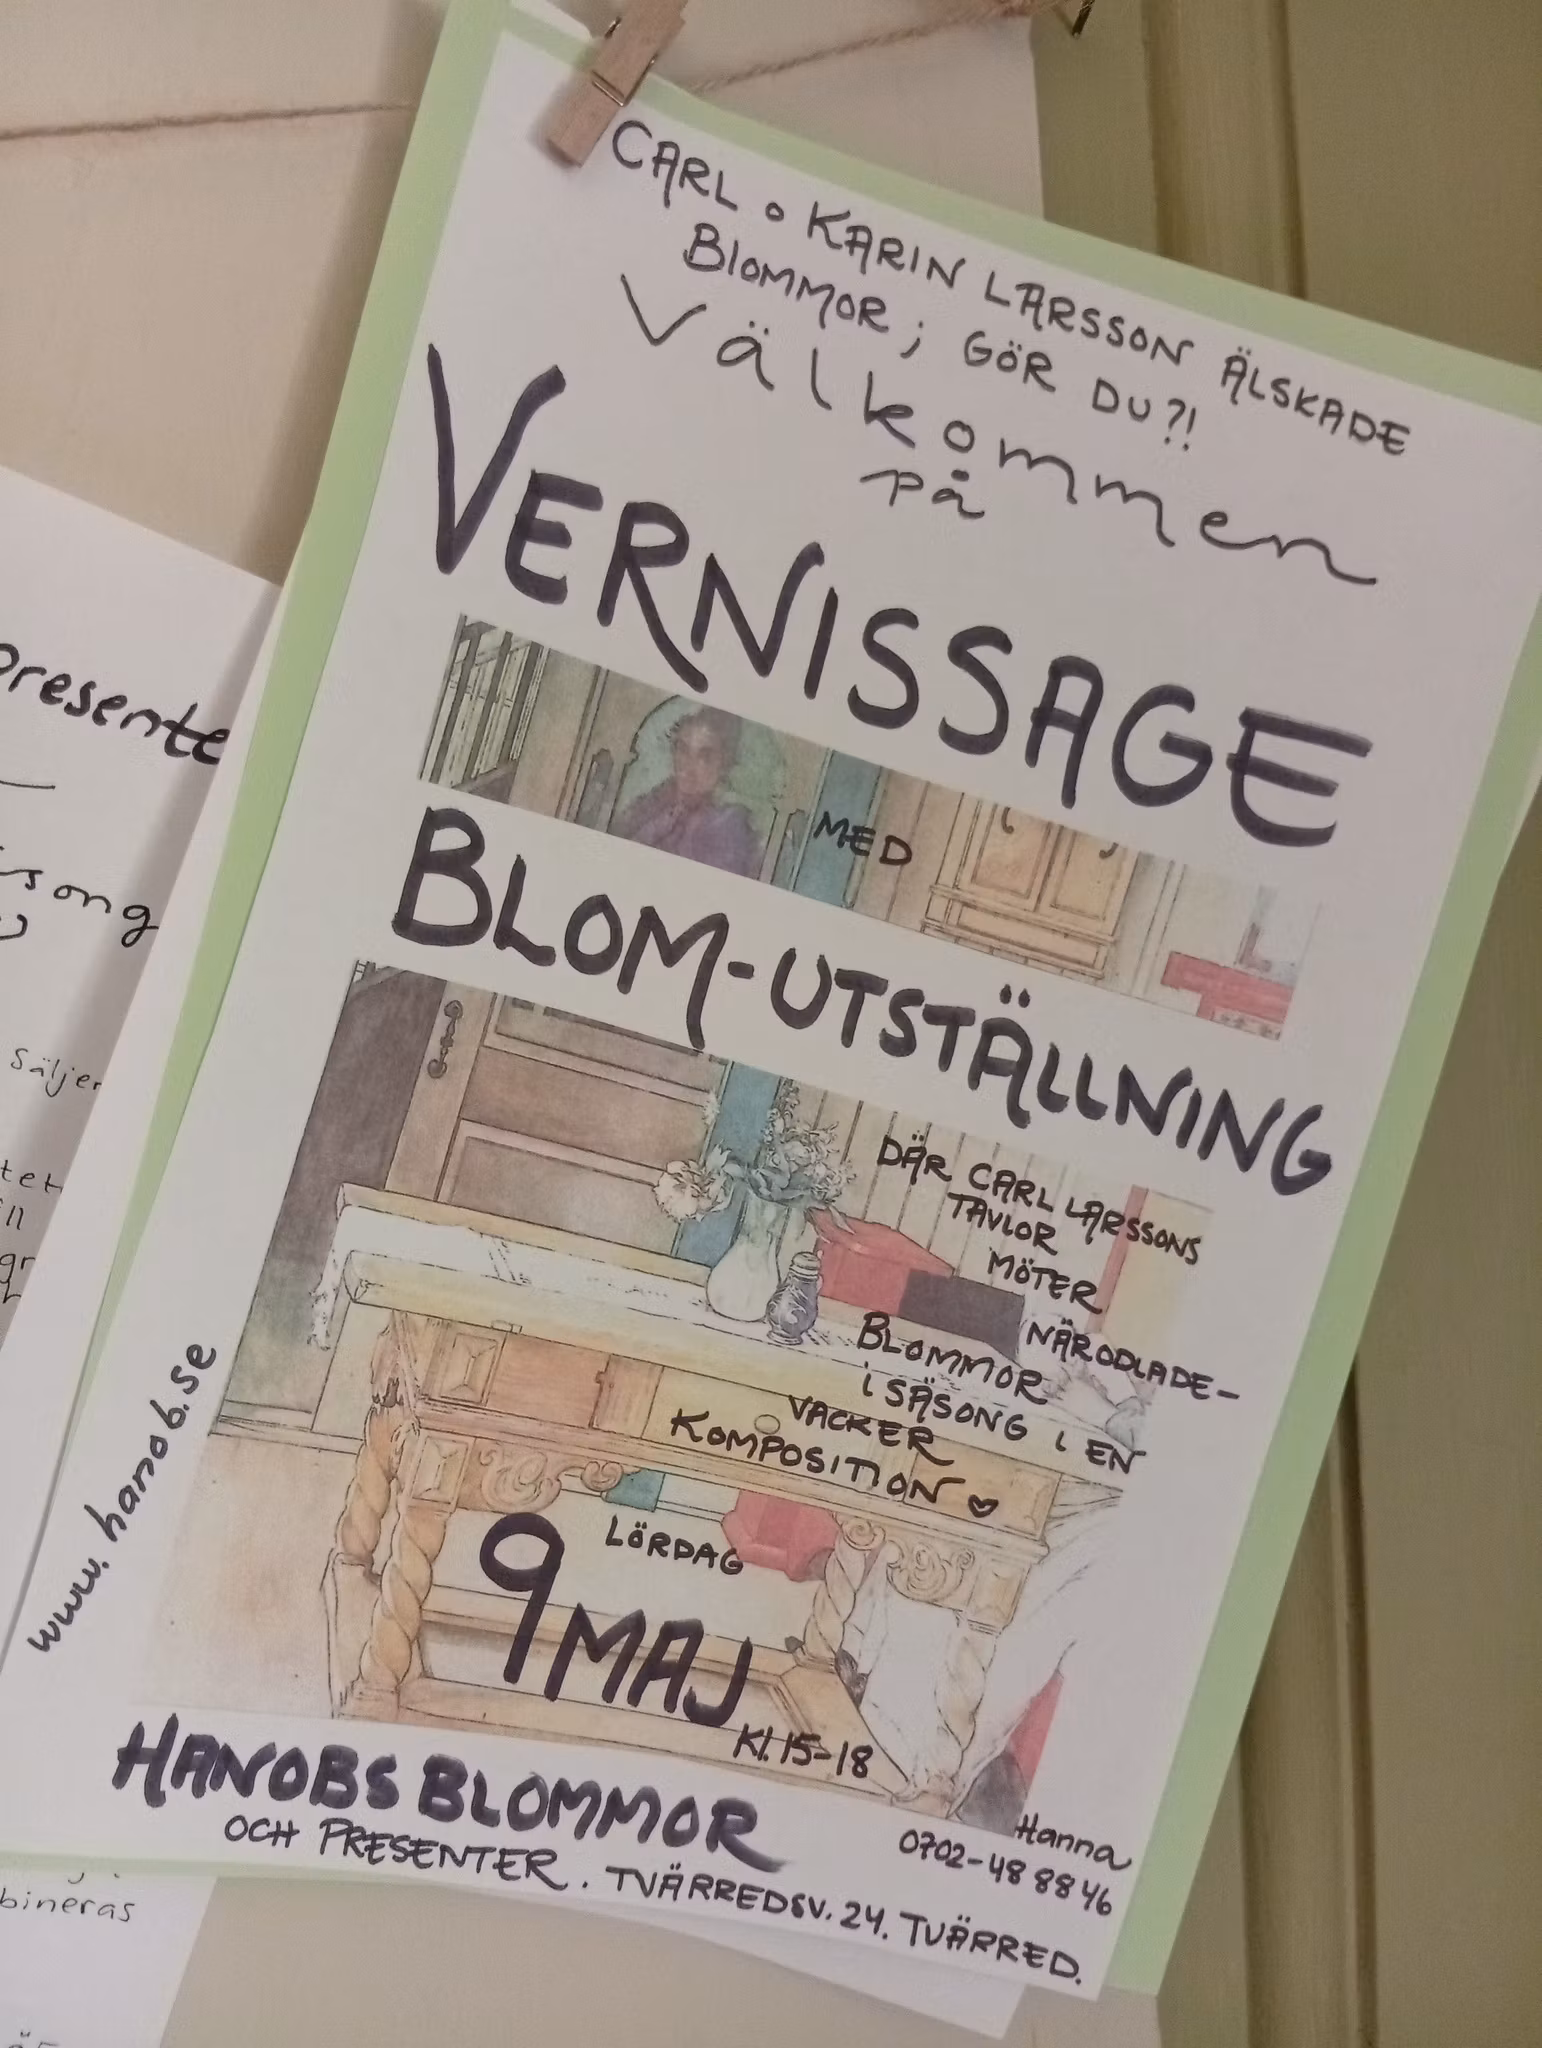 CARL o KARIN LARSSON ÄLSKADE
BLOMMOR; GÖR DU?!
Välkommen
på
VERNISSAGE
MED
BLOM-UTSTÄLLNING
DÄR CARL LARSSONS
TAVLOR
MÖTER
NÄRODLADE-
BLOMMOR
i SÄSONG i EN
VACKER
KOMPOSITION
LÖRDAG
9 MAJ
Kl. 15-18
HANOBS BLOMMOR
OCH PRESENTER. TVÄRREDSV. 24. TVÄRRED.
Hanna
0702-48 88 46
www.hanob.se
presente
song
Säljer
tet
ll
gr
bineras